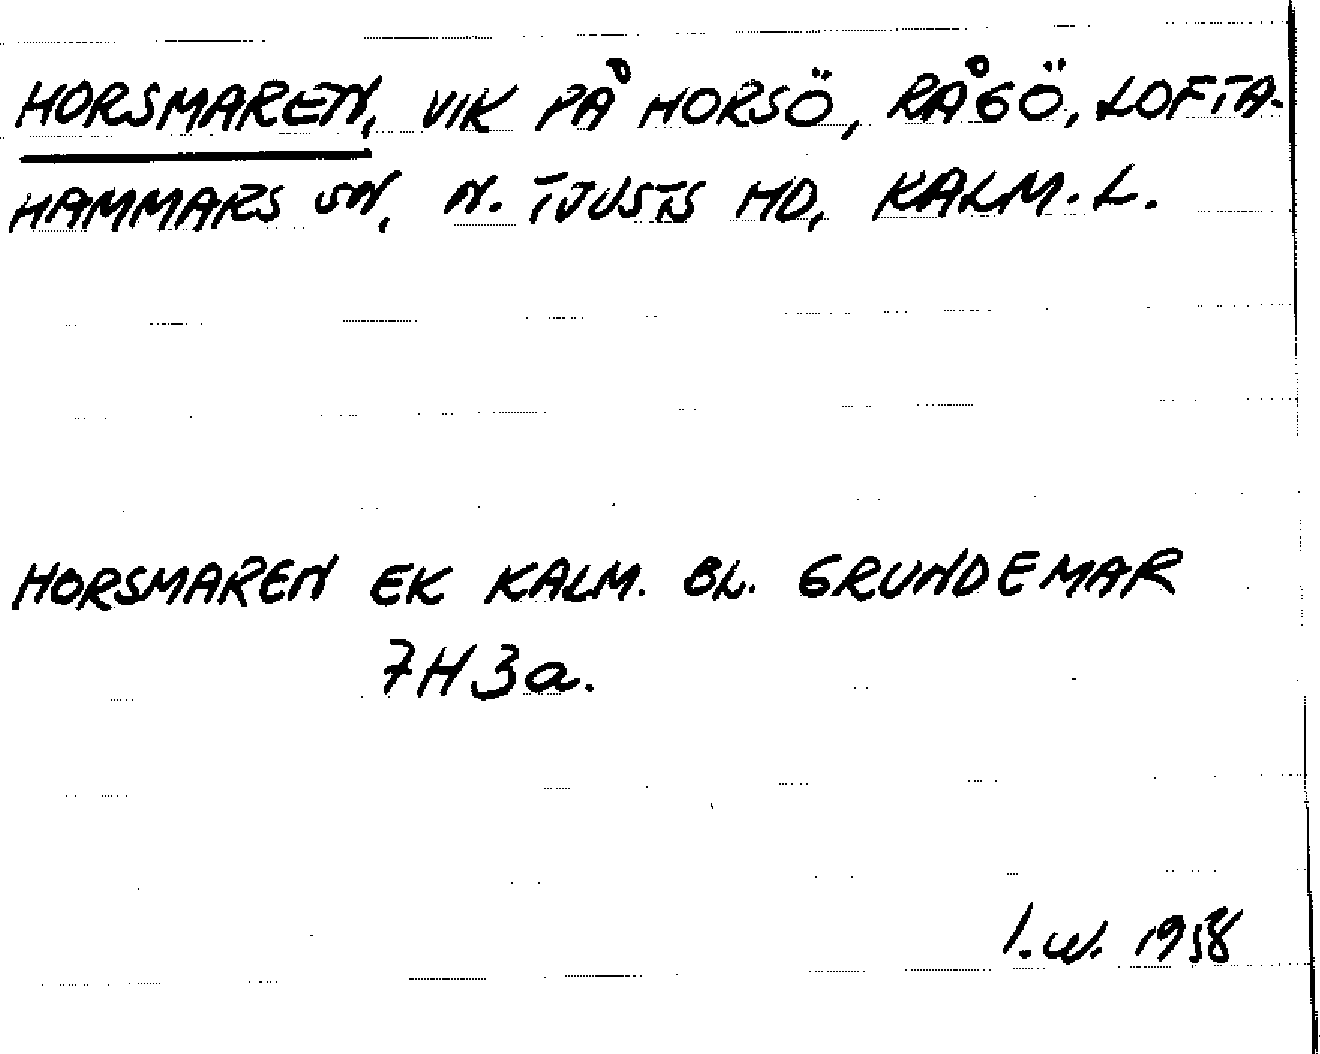 HORSMAREN, VIK PÅ HORSÖ, RÅGÖ, LOFTA-
HAMMARS SN, N. TJUSTS HD, KALM. L.
HORSMAREN EK KALM. BL. GRUNDEMAR
7H3a.
I.W. 1958